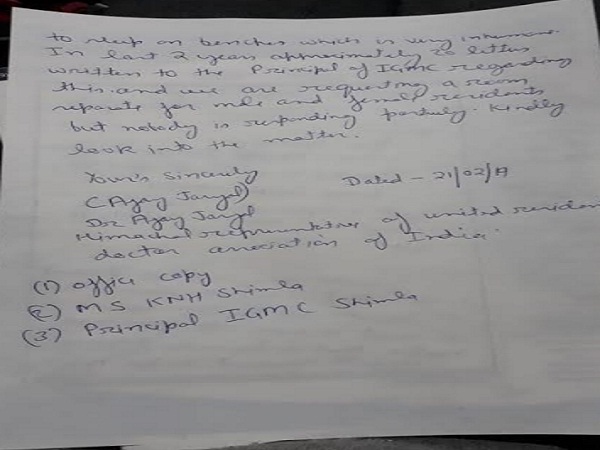 to sleep on benches which is very inhuman.
In last 2 years approximately 20 letters
written to the Principal of IGMC regarding
this and we are requesting a room
separate for male and female residents
but nobody is responding partuly. Kindly
look into the matter.
Your's Sincerely
Dated - 21/02/19
(Ajay Jaryal)
Dr Ajay Jaryal
Himachal representative of united resident
doctor association of India.
(1) office copy
(2) MS KNH Shimla
(3) Principal IGMC Shimla